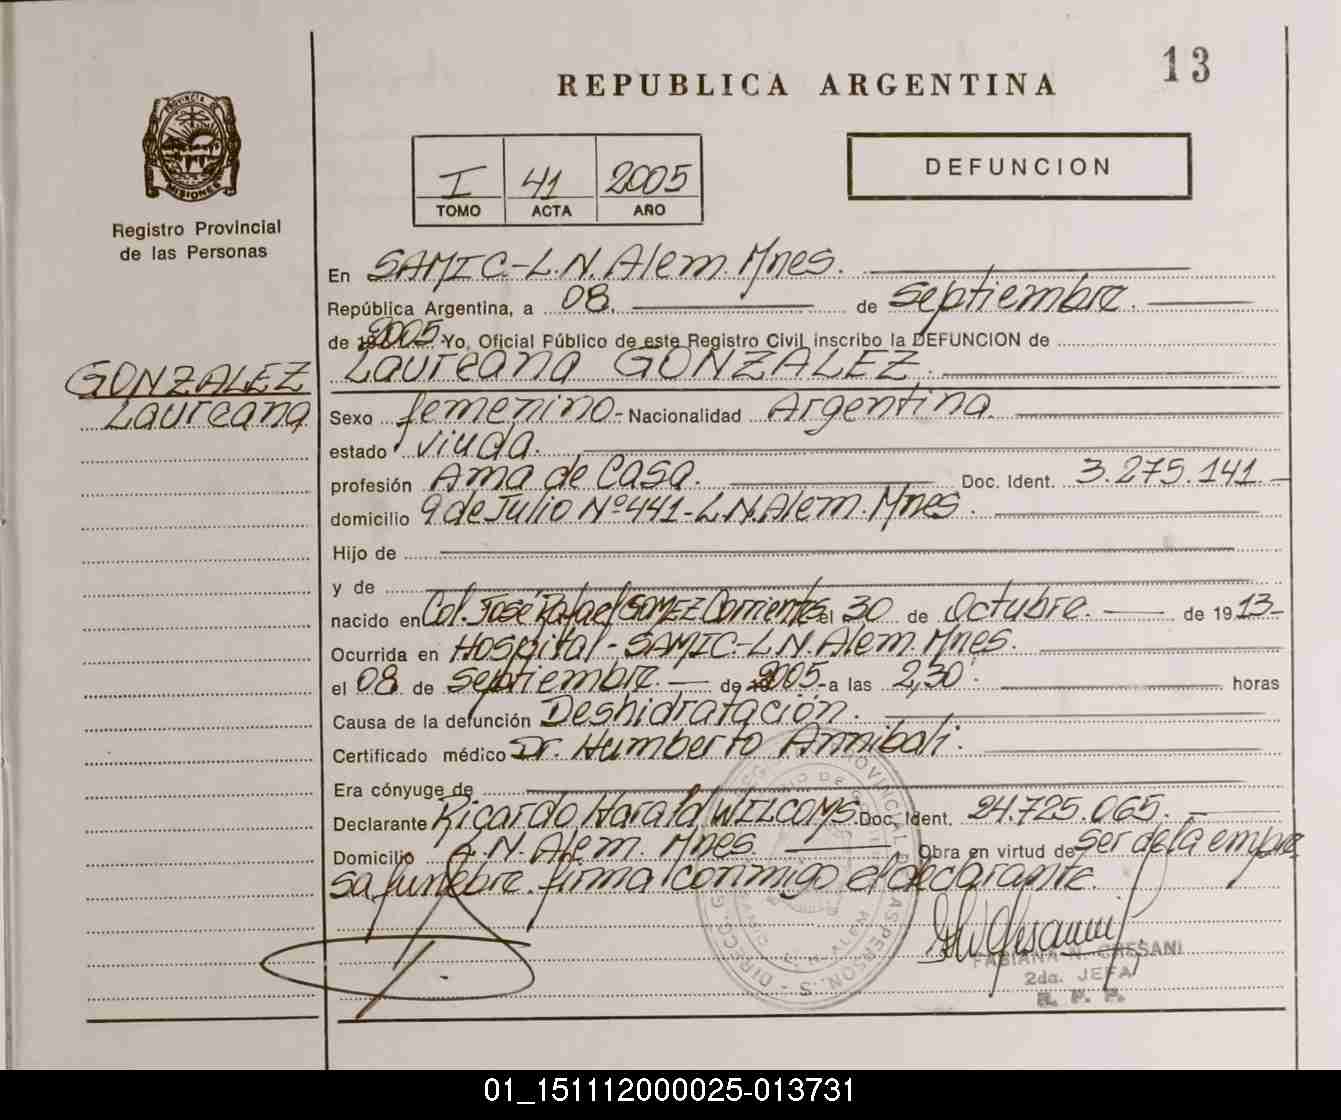 13
REPUBLICA ARGENTINA
PROVINCIA DE
MISIONES
Registro Provincial
de las Personas
I 41 2005
TOMO ACTA AÑO
DEFUNCION
En SAMIC.-L.N.Alem.Mnes.
República Argentina, a 08. de septiembre.
de 2005. Yo, Oficial Público de este Registro Civil inscribo la DEFUNCION de
Laureana GONZALEZ.
GONZALEZ
Laureana
Sexo femenino.- Nacionalidad Argentina.
estado viuda.
profesión Ama de Casa. Doc. Ident. 3.275.141.-
domicilio 9 de Julio Nº 441-L.N.Alem.Mnes.
Hijo de
y de
nacido en Col. José Rafael GOMEZ Corrientes el 30 de Octubre. de 1913-
Ocurrida en Hospital-SAMIC-L.N.Alem.Mnes.
el 08 de septiembre.- de 2005.-a las 2,30' horas
Causa de la defunción Deshidratación.
Certificado médico Dr. Humberto Annibali.
Era cónyuge de
Declarante Ricardo Harald WILCOMS. Doc. Ident. 24.725.065.-
Domicilio L.N.Alem Mnes. Obra en virtud de ser de la empre
sa funebre. firma conmigo el declarante.
FABIANA N. CRESANI
2da. JEFA
R. P. P.
01_151112000025-013731